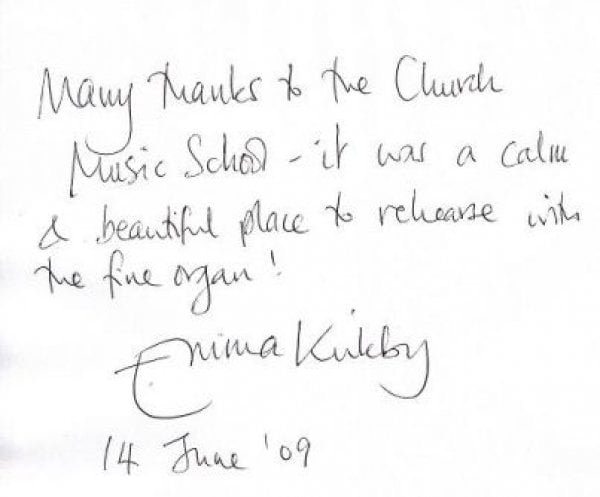 Many thanks to the Church
Music School - it was a calm
& beautiful place to rehearse with
the fine organ!
Emma Kirkby
14 June '09